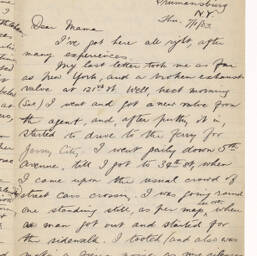 Trumansburg
N.Y.
Thu.
Dear Mama
I've got here all right, after
many experiences.
My last letter took me as far
as New York, and a broken exhaust
valve at 121st St. Well, next morning
(Sat) I went and got a new valve from
the agent, and, after putting it in,
started to drive to the ferry for
Jersey City. I went gaily down 5th
avenue, till I got to 34th st, when
I came upon the usual crowd of
street cars crossing. I was going round
one standing still, as per map, when
a man got out and started for
the sidewalk. I tooted (and also was
make a noise as my silencer